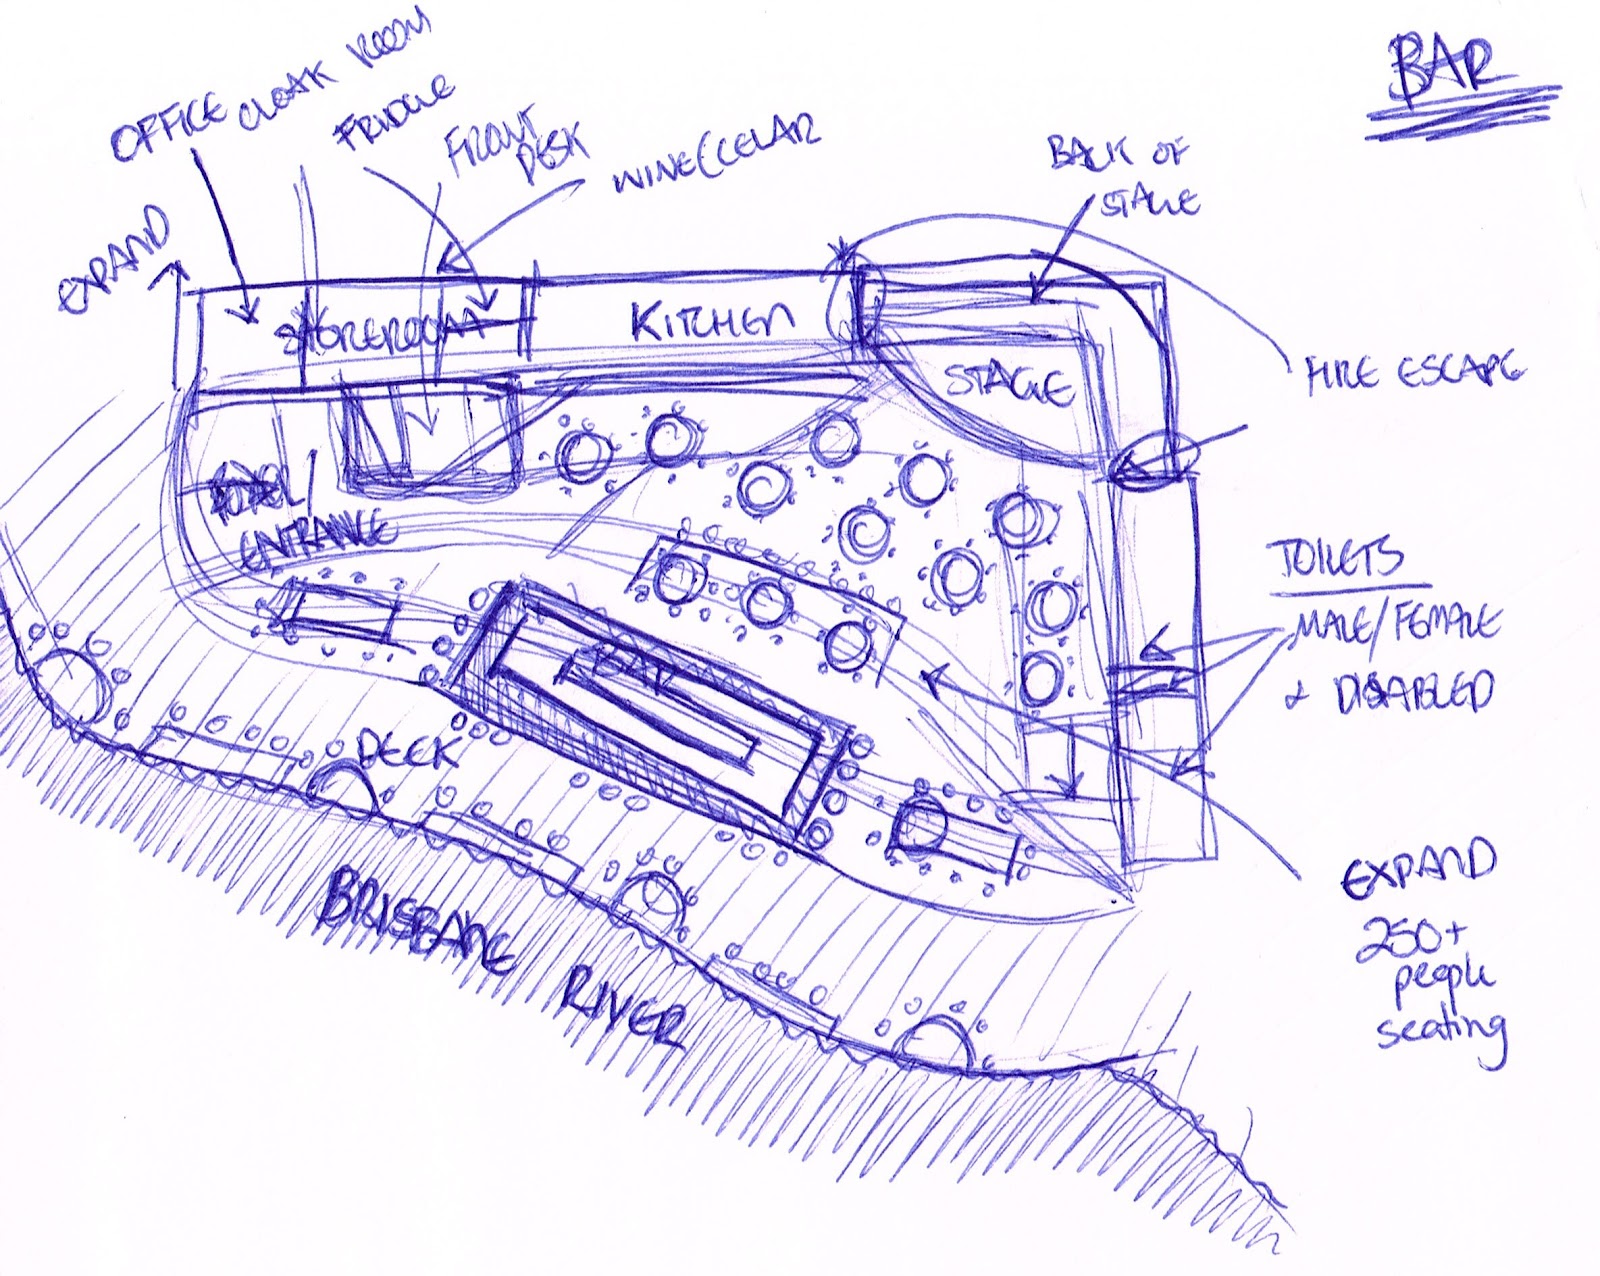 BAR
OFFICE
CLOAK ROOM
FRIDGE
FRONT
DESK
WINE(CELAR
BACK OF
STAGE
EXPAND
STOREROOM
KITCHEN
STAGE
FIRE ESCAPE
ENTRANCE
TOILETS
MALE/FEMALE
+ DISABLED
BAR
DECK
EXPAND
250+
people
seating
BRISBANE
RIVER